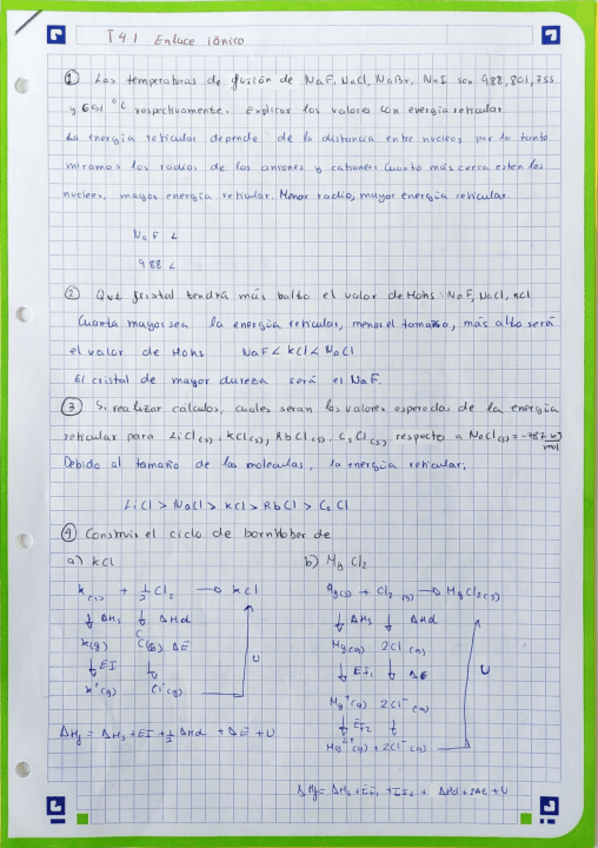 T 4.1 Enlace iónico
① Las temperaturas de fusión de NaF, NaCl, NaBr, NaI son 988, 801, 755
y 651 °C respectivamente. Explicar los valores con energía reticular
La energía reticular depende de la distancia entre nucleos por lo tanto
miramos los radios de los aniones y cationes. Cuanto más cerca esten los
nucleos, mayor energía reticular. Menor radio, mayor energía reticular.
NaF <
988 <
② Que cristal tendrá más balto el valor de Mohs: NaF, NaCl, KCl
Cuanta mayor sea la energía reticular, menor el tamaño, más alto será
el valor de Mohs NaF < KCl < NaCl
El cristal de mayor dureza será el NaF.
③ Si realizar cálculos, cuales seran los valores esperados de la energía
reticular para LiCl(s), KCl(s), RbCl(s), CsCl(s) respecto a NaCl(s) = -787 kJ/mol
Debido al tamaño de las moleculas, la energía reticular;
LiCl > NaCl > KCl > RbCl > CsCl
④ Construir el ciclo de born Haber de
a) KCl b) MgCl2
K(s) + ½ Cl2 → KCl Mg(s) + Cl2 (g) → MgCl2(s)
↓ ΔHs ↓ ΔHd ↓ ΔHs ↓ ΔHd
K(g) Cl(g) ΔE Mg(g) 2Cl (g)
↓ EI ↓ U ↓ EI1 ↓ ΔE U
K+(g) Cl-(g) Mg+(g) 2Cl- (g)
↓ EI2 ↓
Mg2+(g) + 2Cl- (g)
ΔHf = ΔHs + EI + ½ ΔHd + ΔE + U
ΔHf = ΔHs + EI1 + EI2 + ΔHd + 2ΔE + U